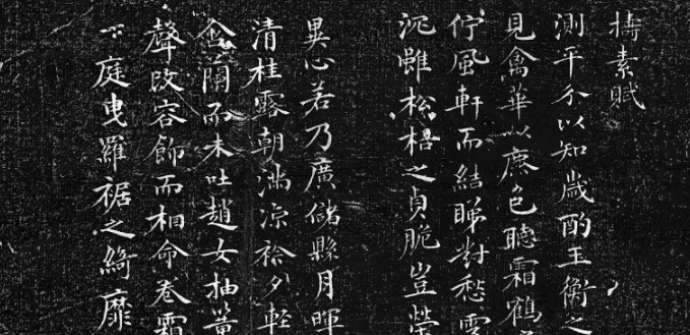 擣素賦
測平分以知歲酌玉衡之
見禽華以麃色聽霜鶴
佇風軒而結睇對愁雲
沉雖松梧之貞脆豈榮
異心若乃廣儲縣月暉
清桂露朝滿涼衿夕輕
含蘭而未吐趙女抽簧
聲改容飾而相命卷霜
下庭曳羅裾之綺靡